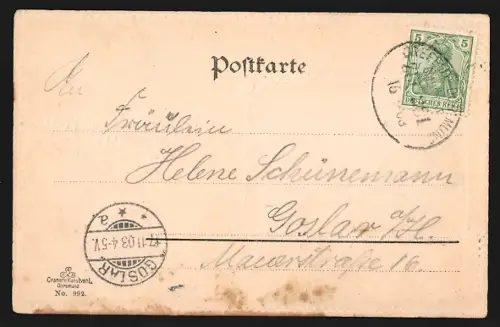 Postkarte
5
DEUTSCHES REICH
An
Fräulein
Helene Schünemann
Goslar a/H.
Mauerstraße 16.
GOSLAR
17.11.03.4-5V.
* * a
Cramers Kunstanst.
Dortmund
No. 992.